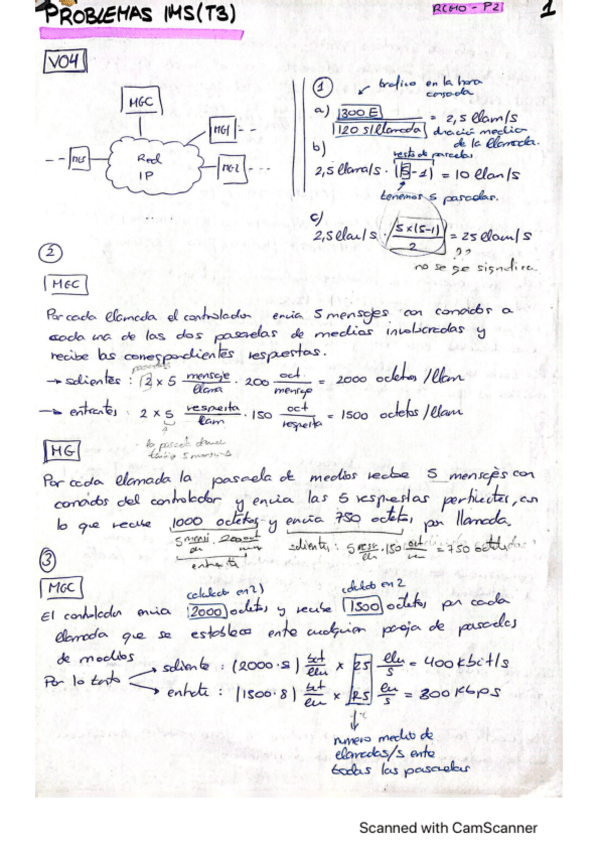 PROBLEMAS IMS (T3)
RCMO - P2
1
V04
MGC
Red IP
MG1 - -
MG2 - - -
- - -
①
trafico en la hora cargada
a) 300 E / 120 s/llamada = 2,5 llam/s
duración media de la llamada.
b)
resto de pasarelas
2,5 llam/s · (5-1) = 10 llam/s
tenemos 5 pasarelas.
c)
2,5 llam/s · 5x(5-1) / 2 = 25 llam/s
??
no se qe significa.
②
MGC
Por cada llamada el controlador envia 5 mensajes con comandos a
cada una de las dos pasarelas de medios involucradas y
recibe las correspondientes respuestas.
pasarelas
→ salientes : 2 x 5 mensaje/llam · 200 oct/mensaje = 2000 octetos/llam
→ entrantes : 2 x 5 respuesta/llam · 150 oct/respuesta = 1500 octetos/llam
la pasarela
MG
Por cada llamada la pasarela de medios recibe 5 mensajes con
comandos del controlador y envia las 5 respuestas pertinentes, con
lo que recibe 1000 octetos y envia 750 octetos por llamada.
entrante
salientes : 5 resp/llam · 150 oct/resp = 750 octetos
③
MGC
calculado en 2)
calculado en 2
El controlador envia 2000 octetos y recibe 1500 octetos por cada
llamada que se establece entre cualquier pareja de pasarelas
de medios
Por lo tanto
saliente : (2000 · 8) bit/llam x 25 llam/s = 400 kbit/s
entrante : (1500 · 8) bit/llam x 25 llam/s = 300 kbps
numero medio de
llamadas/s entre
todas las pasarelas
Scanned with CamScanner